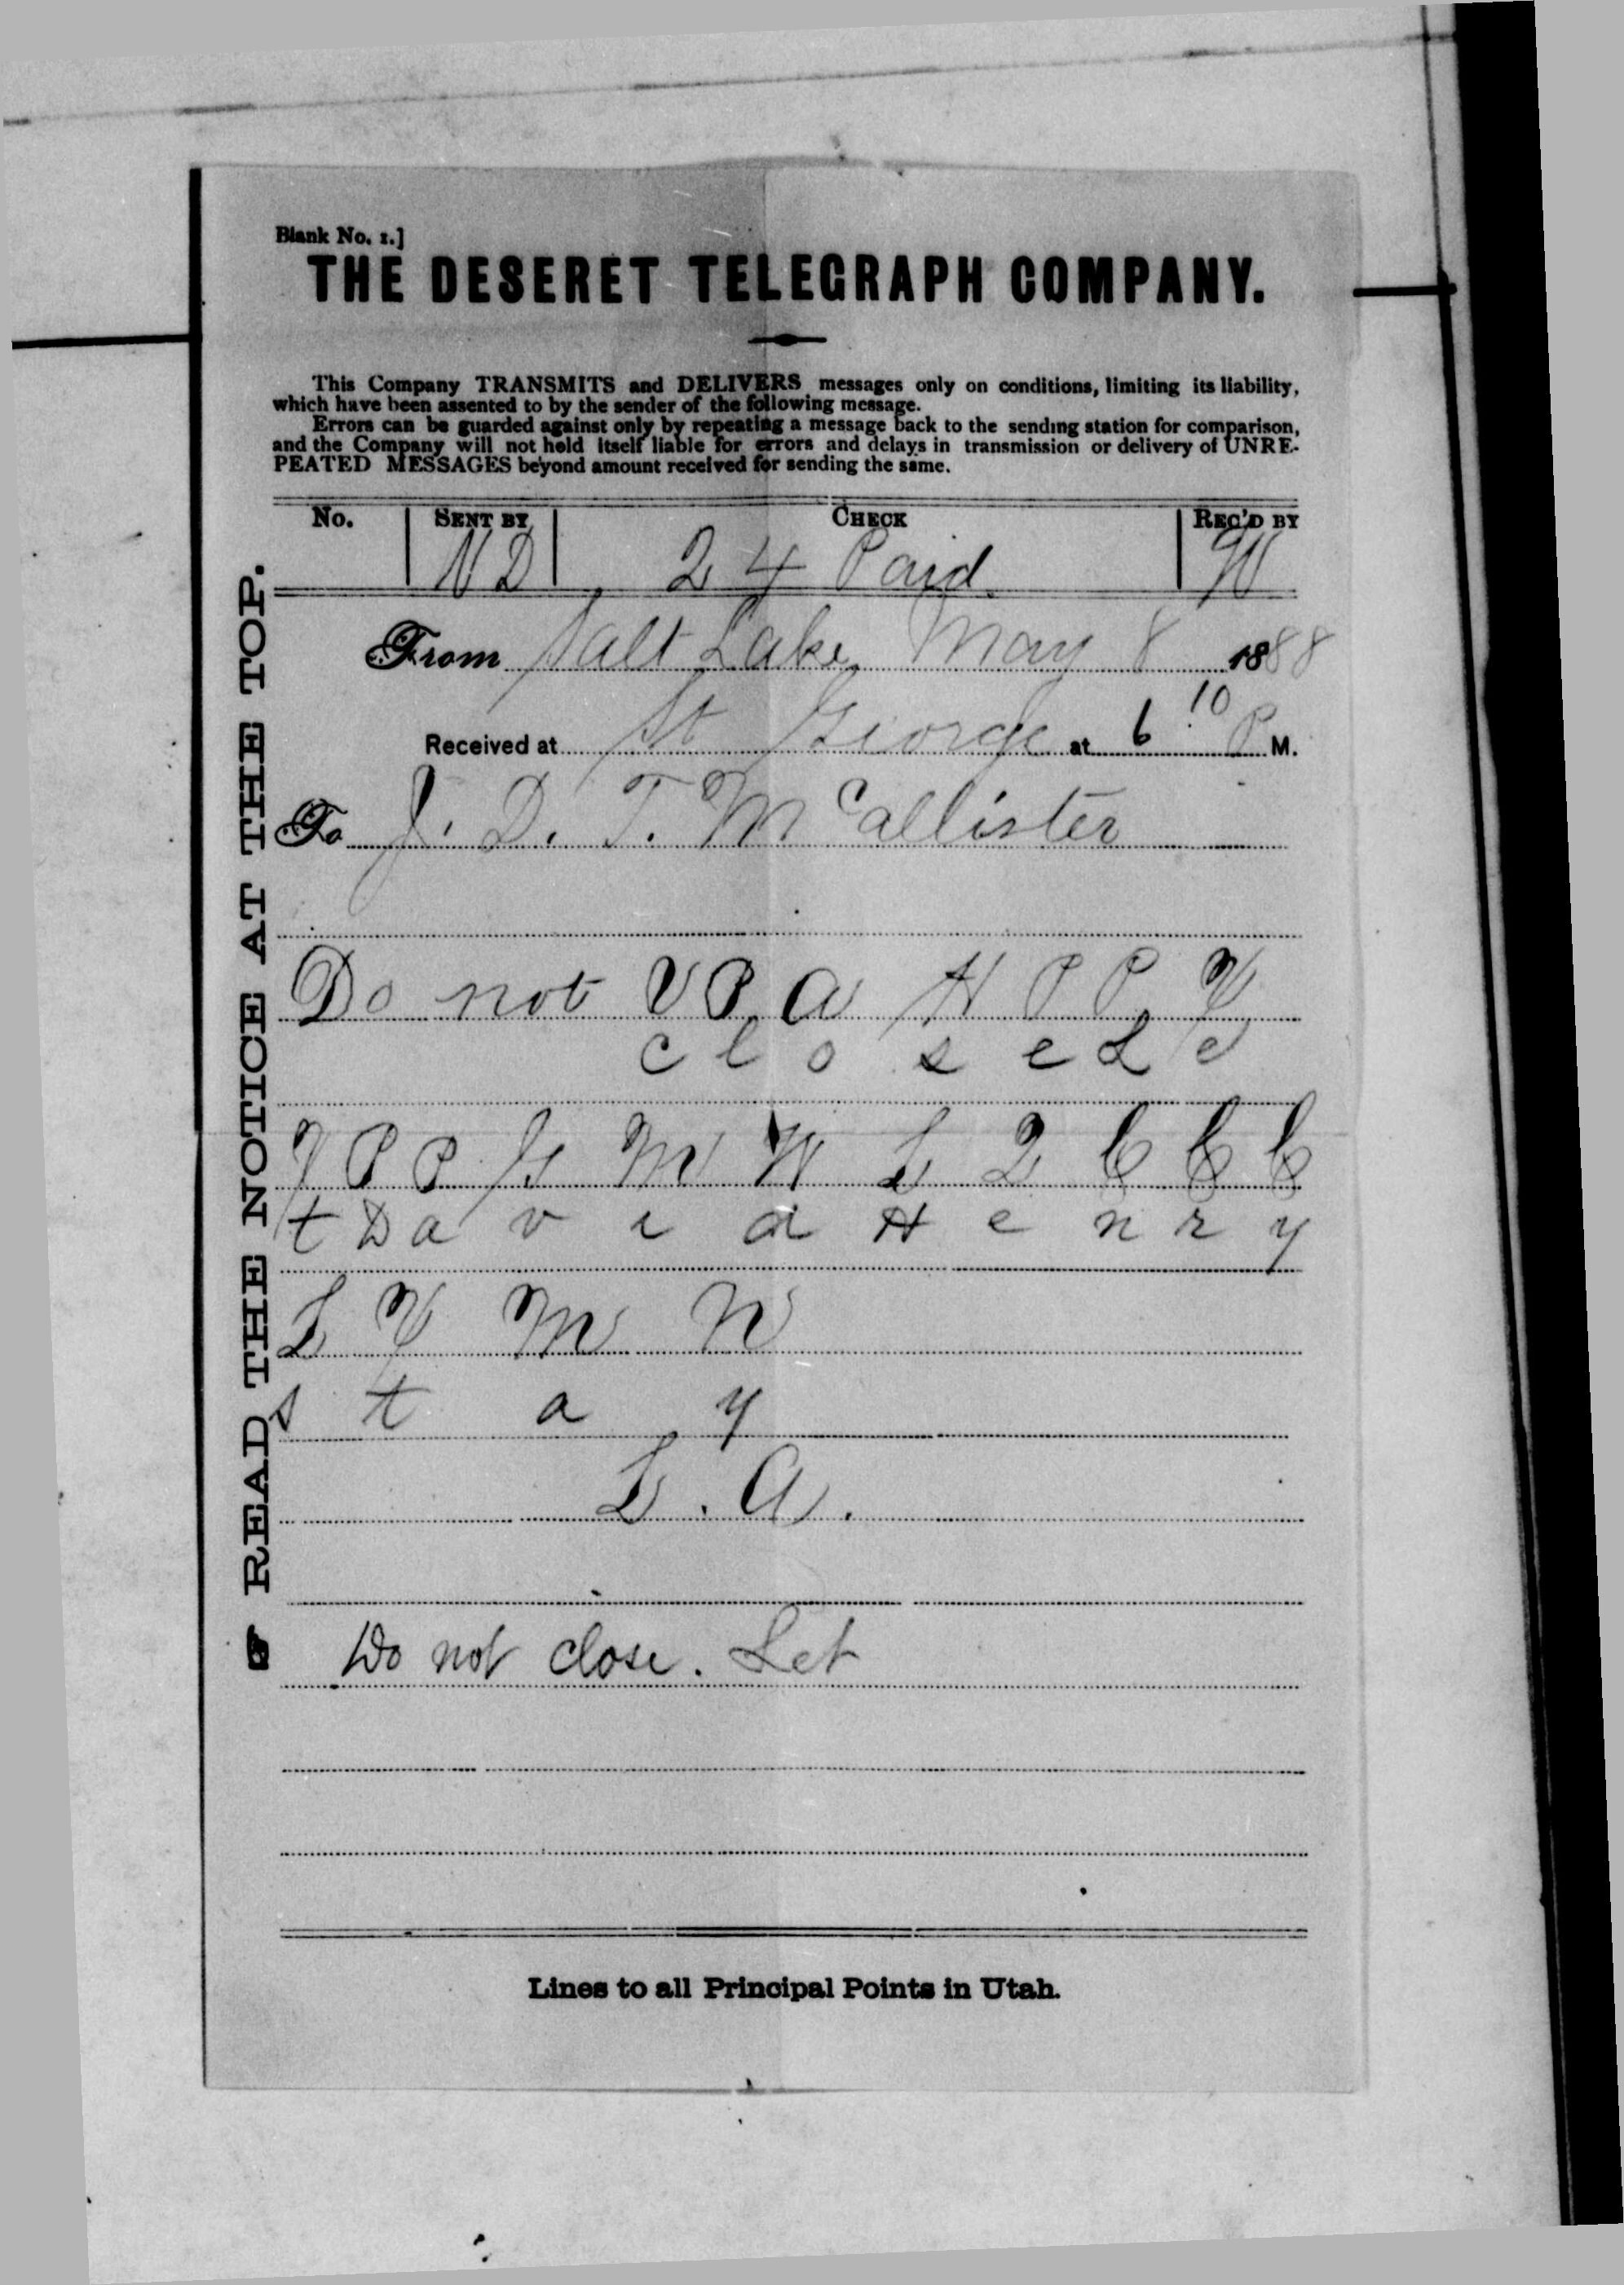 Blank No. 1.]
THE DESERET TELEGRAPH COMPANY.
This Company TRANSMITS and DELIVERS messages only on conditions, limiting its liability,
which have been assented to by the sender of the following message.
Errors can be guarded against only by repeating a message back to the sending station for comparison,
and the Company will not hold itself liable for errors and delays in transmission or delivery of UNRE-
PEATED MESSAGES beyond amount received for sending the same.
No. SENT BY CHECK REC'D BY
ND 24 Paid W
From Salt Lake May 8 1888
Received at St George at 6 10 P M.
To J. D. T. McCallister
Do not V P A H P P Y
c l o s e L e
Y P P G M W L 2 C C C
t D a v i d H e n r y
L Y M W
s t a y
L. A.
Do not close. Let
Lines to all Principal Points in Utah.
READ THE NOTICE AT THE TOP.